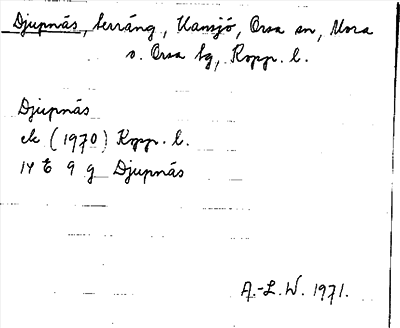 Djupnäs, terräng, Hansjö, Orsa sn, Mora
o. Orsa tg, Kopp. l.
Djupnäs
ek (1970) Kopp. l.
14 E 9 g Djupnäs
A.-L. W. 1971.